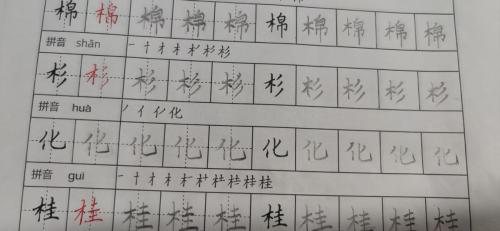 棉 棉 棉 棉 棉 棉 棉 棉 棉 棉
拼音 shān 一 十 才 木 木 杉 杉
杉 杉 杉 杉 杉 杉 杉 杉 杉 杉
拼音 huà ノ 亻 亻 化
化 化 化 化 化 化 化 化 化 化
拼音 gui 一 十 才 木 木 杜 桂 桂 桂 桂
桂 桂 桂 桂 桂 桂 桂 桂 桂 桂